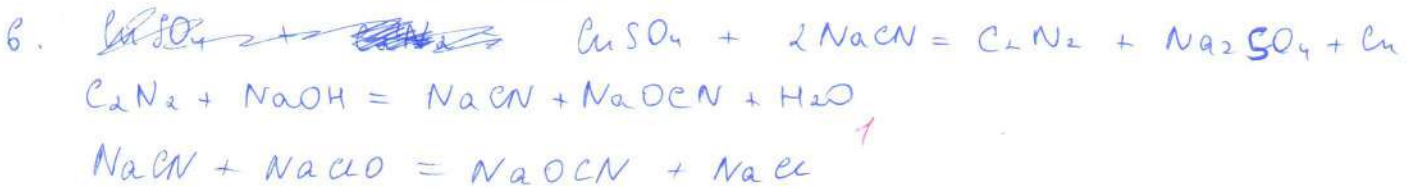 6. CuSO4 + 2NaCN = C2N2 + Na2SO4 + Cu
C2N2 + NaOH = NaCN + NaOCN + H2O
1
NaCN + NaClO = NaOCN + NaCl